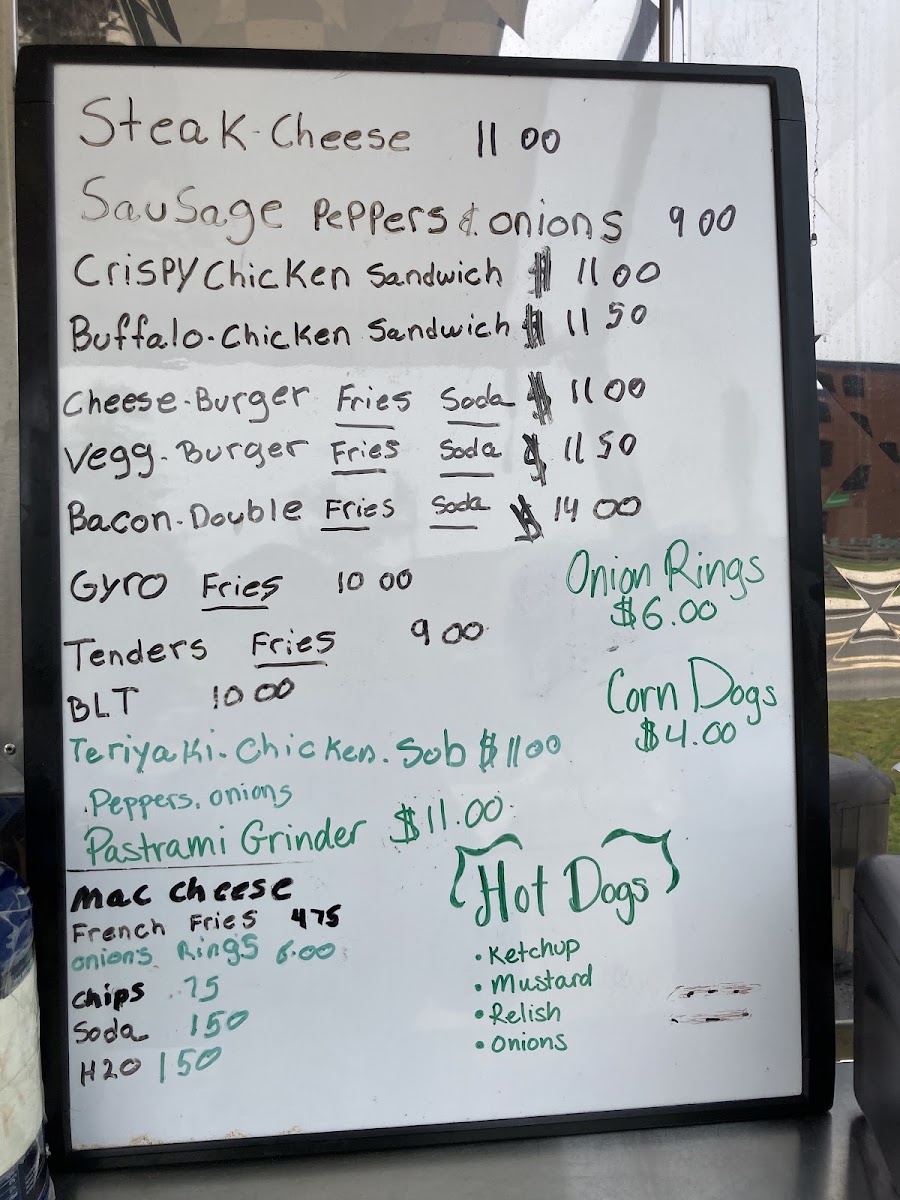 Steak-Cheese 11 00
Sausage Peppers & onions 9 00
Crispy Chicken Sandwich $ 11 00
Buffalo-Chicken Sandwich $ 11 50
Cheese-Burger Fries Soda $ 11 00
Vegg-Burger Fries Soda $ 11 50
Bacon-Double Fries Soda $ 14 00
Gyro Fries 10 00
Tenders Fries 9 00
BLT 10 00
Onion Rings
$6.00
Corn Dogs
$4.00
Teriyaki-Chicken. Sub $ 11 00
Peppers. onions
Pastrami Grinder $11.00
Mac Cheese
French Fries 475
onions Rings 6.00
chips .75
Soda 150
H20 150
Hot Dogs
• Ketchup
• Mustard
• Relish
• Onions